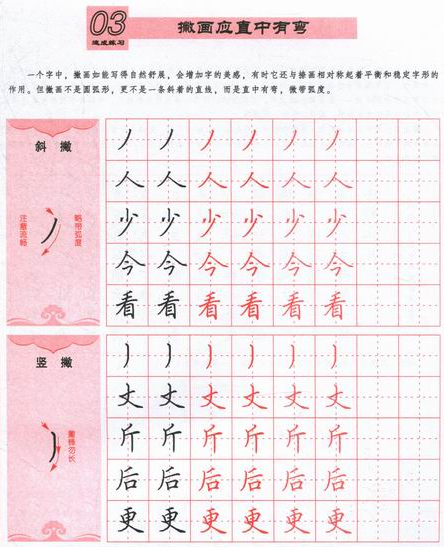 03
速成练习
撇画应直中有弯
一个字中，撇画如能写得自然舒展，会增加字的美感，有时它还与捺画相对称起着平衡和稳定字形的
作用。但撇画不是圆弧形，更不是一条斜着的直线，而是直中有弯，微带弧度。
斜 撇
注意流畅
略带弧度
丿 丿 丿 丿 丿 丿
人 人 人 人 人 人
少 少 少 少 少 少
今 今 今 今 今 今
看 看 看 看 看 看
竖 撇
撇锋勿长
丿 丿 丿 丿 丿 丿
丈 丈 丈 丈 丈 丈
斤 斤 斤 斤 斤 斤
后 后 后 后 后 后
更 更 更 更 更 更